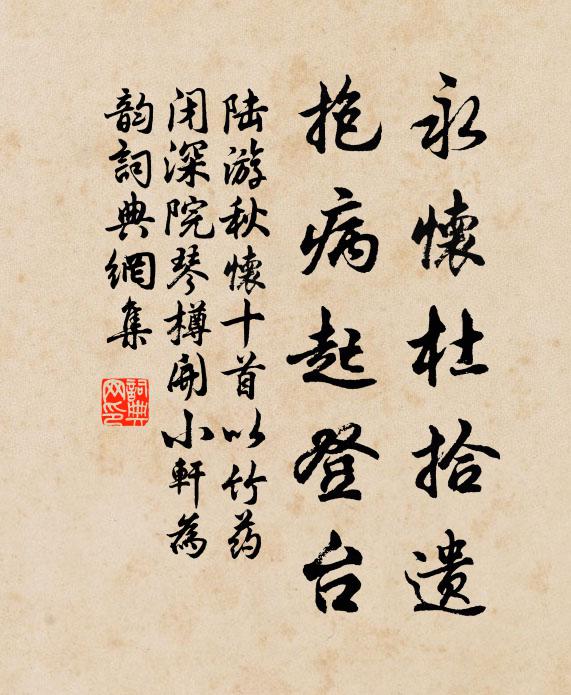 永懷杜拾遗
抱病起登台
陆游秋懷十首以竹药
闭深院琴樽開小軒為
韵詞典網集
詞典
网印